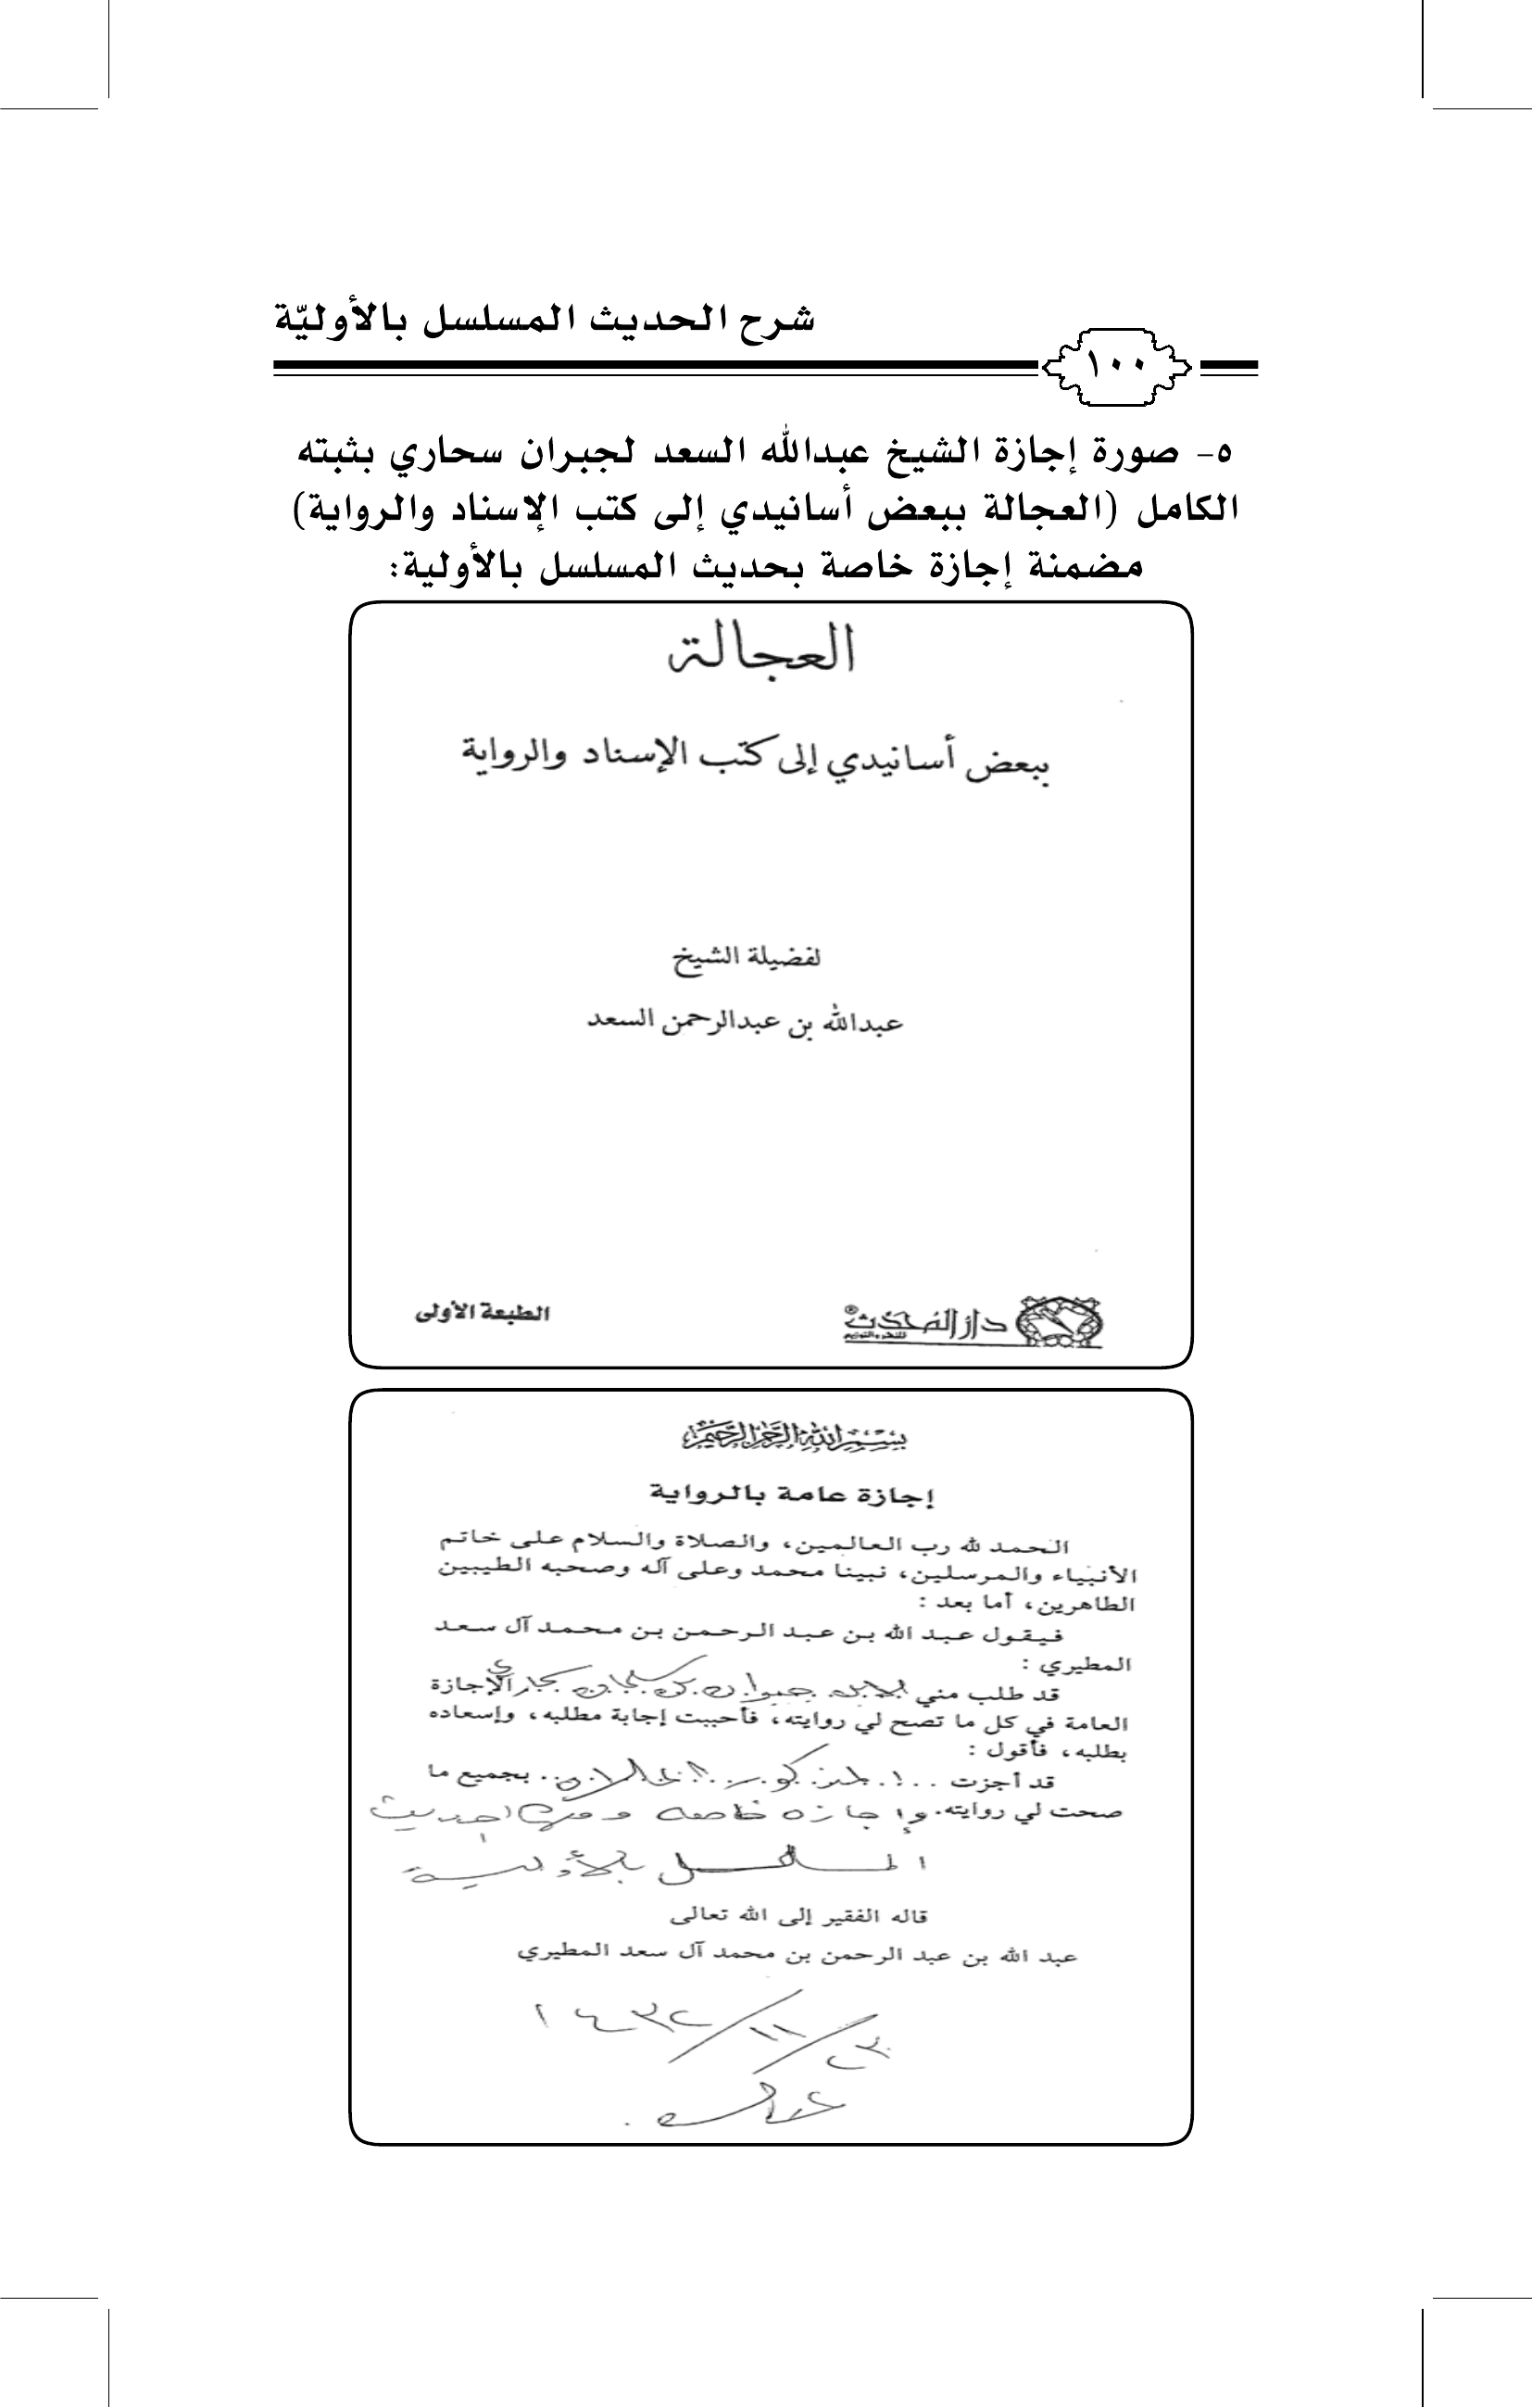 شرح الحديث المسلسل بالأوليّة
١٠٠
٥- صورة إجازة الشيخ عبدالله السعد لجبران سحاري بثبته
الكامل (العجالة ببعض أسانيدي إلى كتب الإسناد والرواية)
مضمنة إجازة خاصة بحديث المسلسل بالأولية:
العجالة
ببعض أسانيدي إلى كتب الإسناد والرواية
لفضيلة الشيخ
عبدالله بن عبدالرحمن السعد
دار المحدث®
للنشر والتوزيع
الطبعة الأولى
بسم الله الرحمن الرحيم
إجازة عامة بالرواية
الحمد لله رب العالمين، والصلاة والسلام على خاتم
الأنبياء والمرسلين، نبينا محمد وعلى آله وصحبه الطيبين
الطاهرين، أما بعد :
فيقول عبد الله بن عبد الرحمن بن محمد آل سعد
المطيري :
قد طلب مني جبران بن سحاري الإجازة
العامة في كل ما تصح لي روايته، فأحببت إجابة مطلبه، وإسعاده
بطلبه، فأقول :
قد أجزت المذكور بجميع ما
صحت لي روايته. وإجازة خاصة الحديث
المسلسل بالأولية
قاله الفقير إلى الله تعالى
عبد الله بن عبد الرحمن بن محمد آل سعد المطيري
٢٣/١١/١٤٣٢